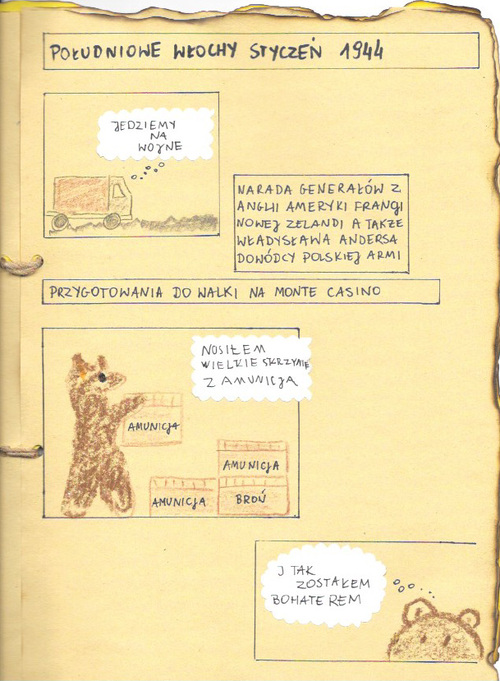 POŁUDNIOWE WŁOCHY STYCZEŃ 1944
JEDZIEMY
NA
WOJNE
NARADA GENERAŁÓW Z
ANGLI AMERYKI FRANCJI
NOWEJ ZELANDI A TAKŻE
WŁADYSŁAWA ANDERSA
DOWÓDCY POLSKIEJ ARMI
PRZYGOTOWANIA DO WALKI NA MONTE CASINO
NOSIŁEM
WIELKIE SKRZYNIE
Z AMUNICJĄ
AMUNICJA
AMUNICJA
AMUNICJA
BROŃ
I TAK
ZOSTAŁEM
BOHATEREM